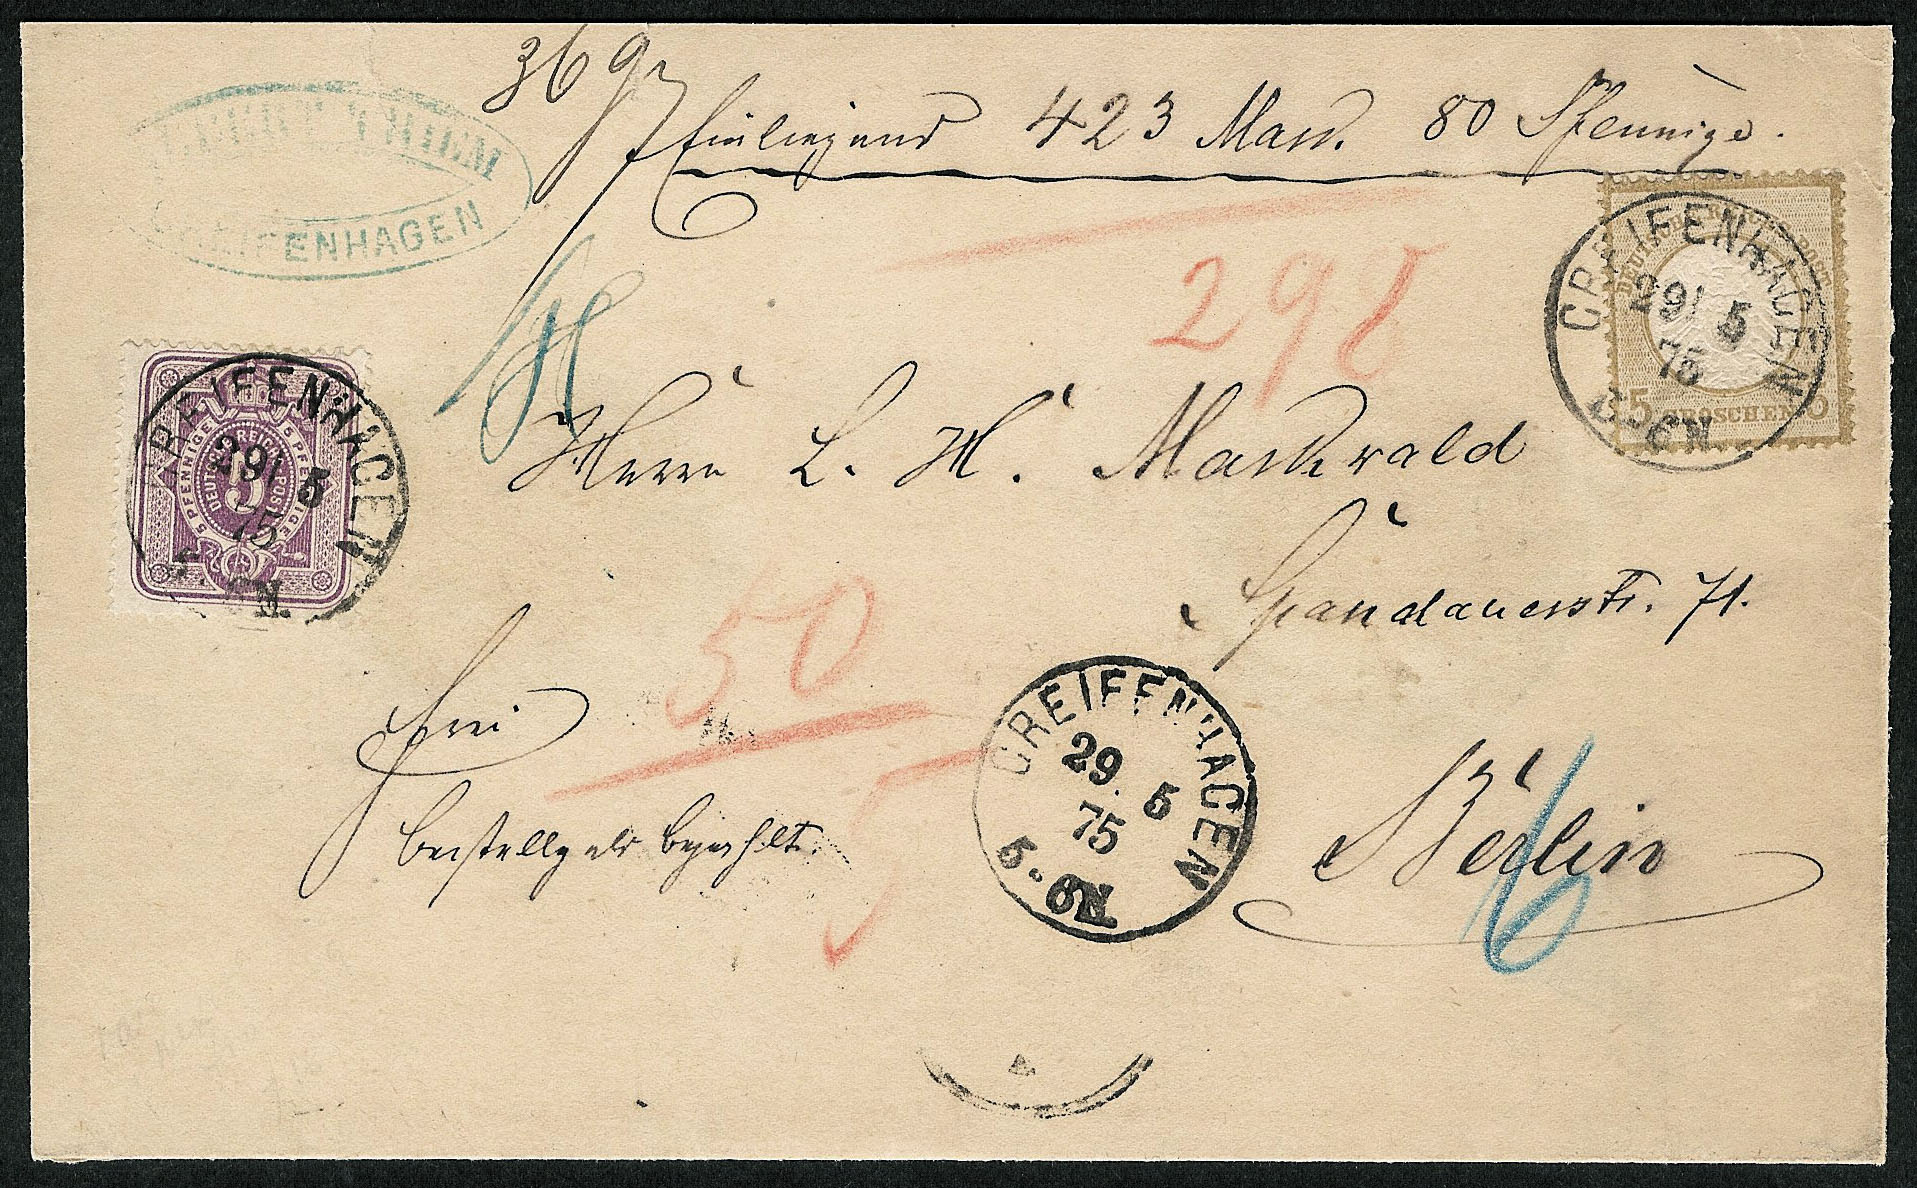 369
Einliegend 423 Mark. 80 Pfennige.
GREIFENHAGEN
298
DEUTSCHE REICHS-POST
5 GROSCHEN 5
GREIFENHAGEN
29/ 5
75
5-6N
5 PFENNIGE 5 PFENNIGE
DEUTSCHE REICHS-POST
5
5 PFENNIGE 5 PFENNIGE
GREIFENHAGEN
29/ 5
75
5-6N
Herrn L. H. Markwald
Spandauerstr. 71.
50
frei
bestellgeld bezahlt.
5
GREIFENHAGEN
29. 5
75
5-6N
Berlin
6